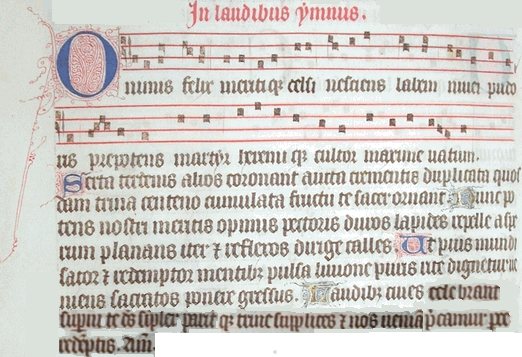 In laudibus ẏmnus.
O nimis felix meritiqꝫ celsi nesciens labem niuei pudo
ris prepotens martẏr heremi qꝫ cultor maxime uatum.
Serta terdenis alios coronant aucta crementis duplicata quos
dam trina centeno cumulata fructu te sacer ornant. Nunc po
tens nostri meritis opimus pectoris duros lapides repelle aspe
rum planans iter ⁊ reflexos dirige calles. Ut pius mundi
sator ⁊ redemptor mentibꝫ pulsa liuione puris rite dignetur ue
niens sacratos ponere gressus. Laudibꝫ ciues celebrant
suꝑni te dꝰs siplex parit qꝫ trine suplices ⁊ nos ueniā p̄camur par
redēptis. Am̄